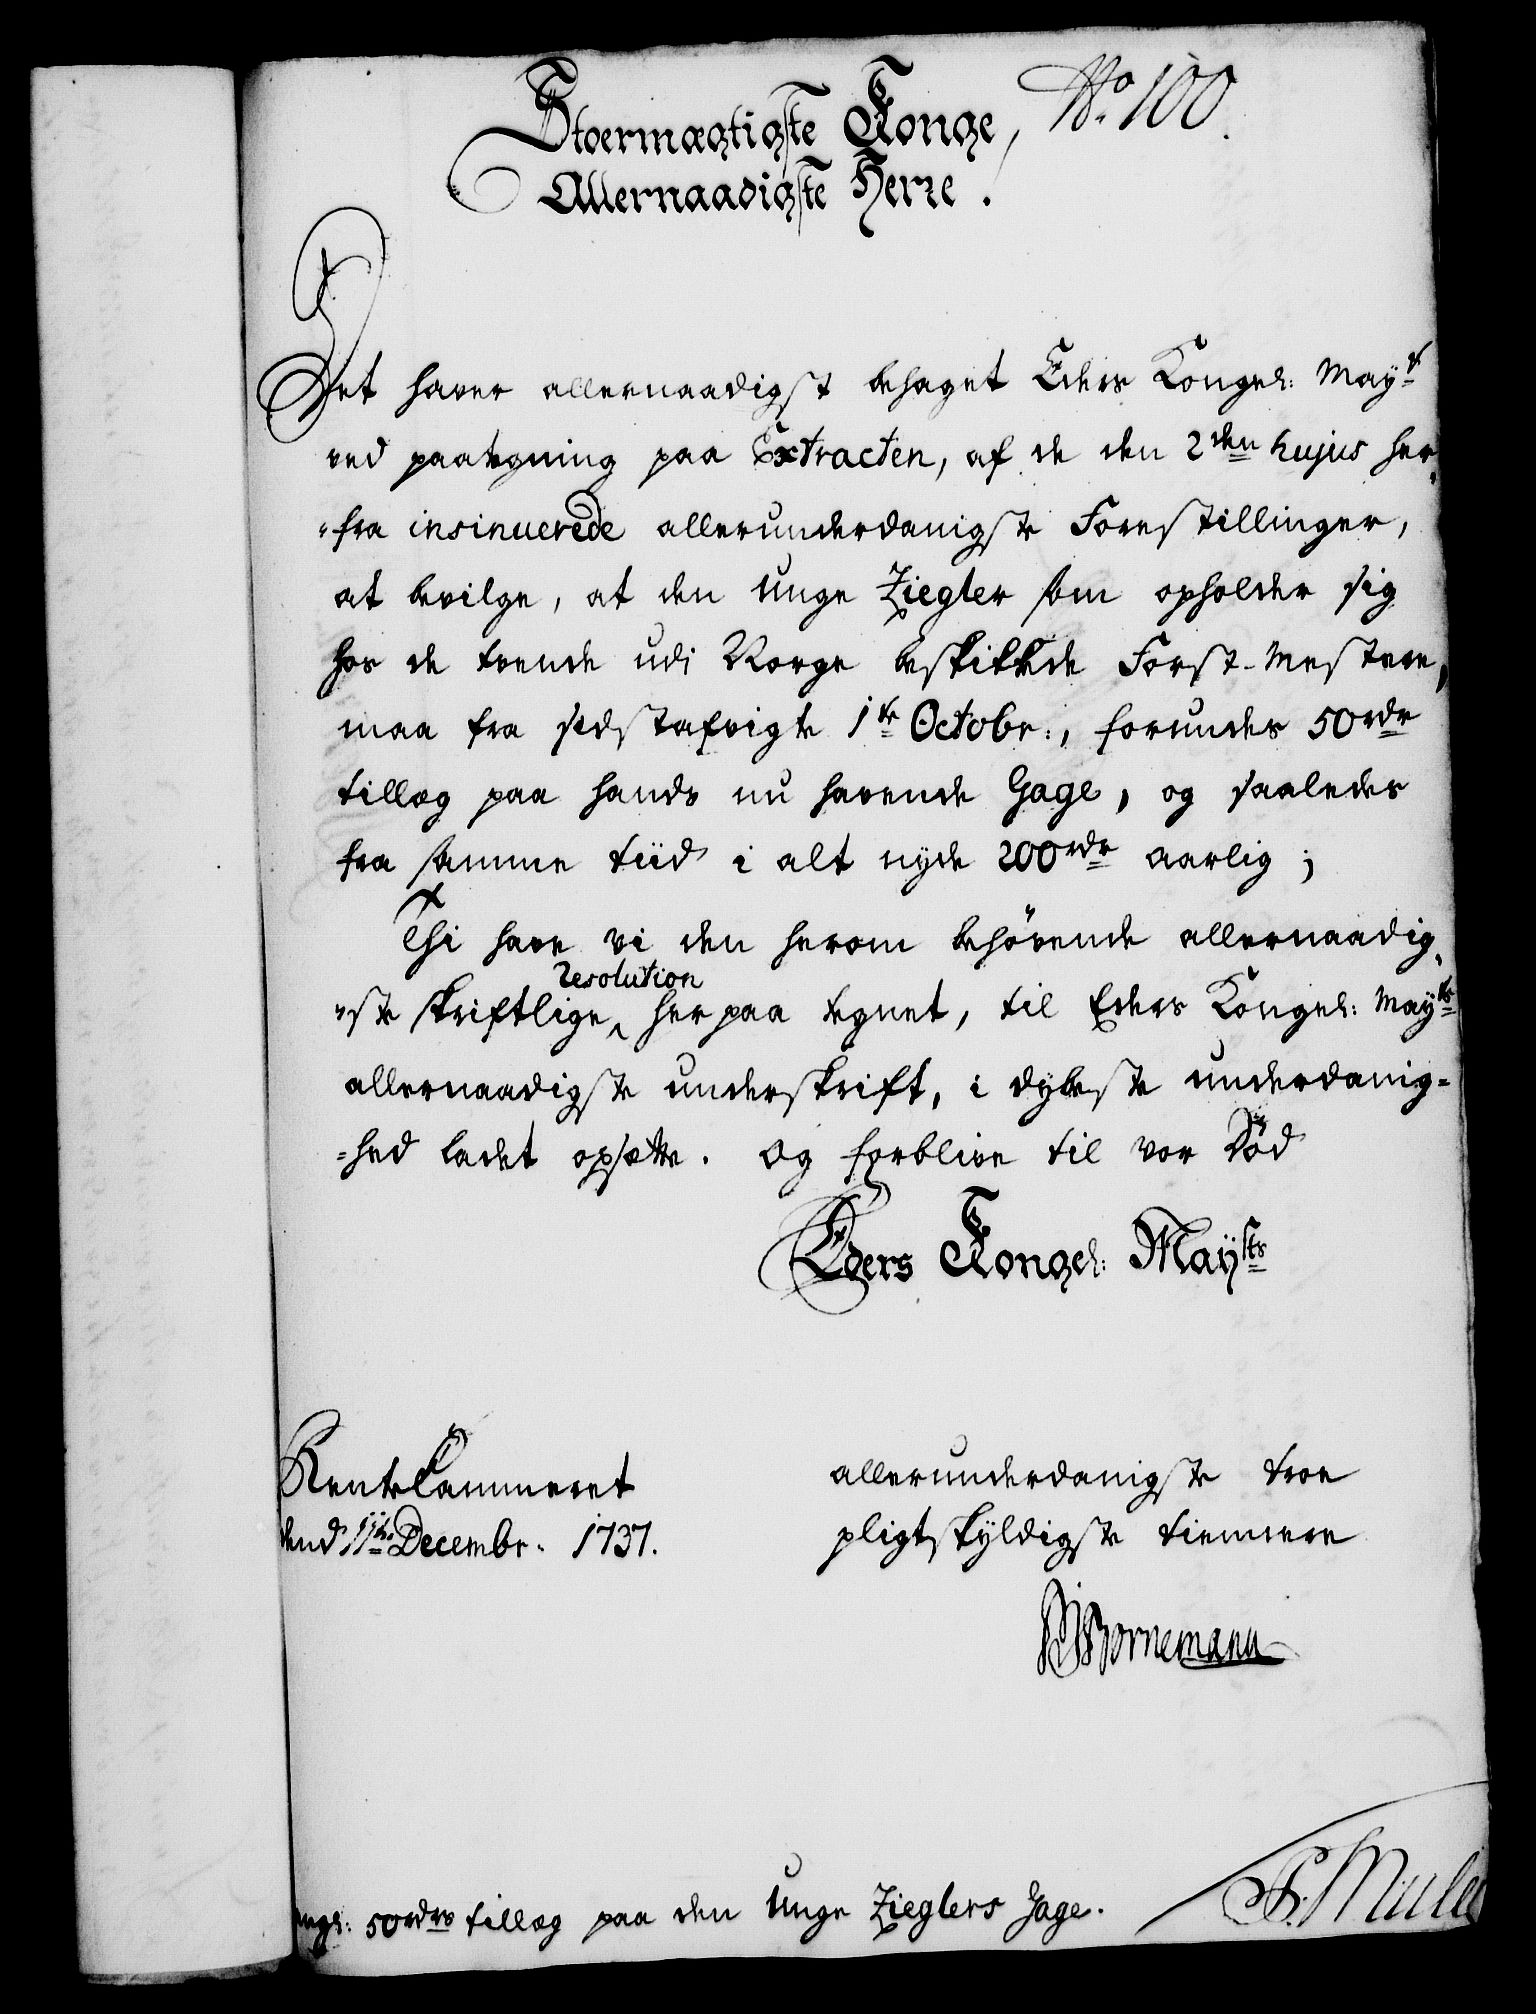 Stoermægtigste Konge, No. 100.
Allernaadigste Herre.
Det haver allernaadigst behaget Eders Kongel: Mayt
ved paategning paa Extracten, af de den 2den hujus her,
"fra insinuerede allerunderdanigste Forestillinger,
at bevilge, at den unge Ziegler som opholder sig
hos de trende udi Norge beskikkede Forst-Mestere,
maa fra sidstafvigte 1te Octobr:, forundes 50rdr
tillæg paa hands nu havende Gage, og saaledes
fra samme tiid i alt nyde 200rdr aarlig;
Thi have vi den herom behøvende allernaadig,
"ste skriftlige resolution her paa tegnet, til Eders Kongel: Mayts
allernaadigste underskrift, i dybeste underdanig=
=hed ladet opsætte. Og forblive til vor Død
Eders Kongel: Maysts
RenteCammeret
dend 11te Decembr. 1737.
allerunderdanigste troe
pligtskyldigste tiennere
Bornemann
F. Mulle
angl: 50rdrs tillæg paa den Unge Zieglers Gage.